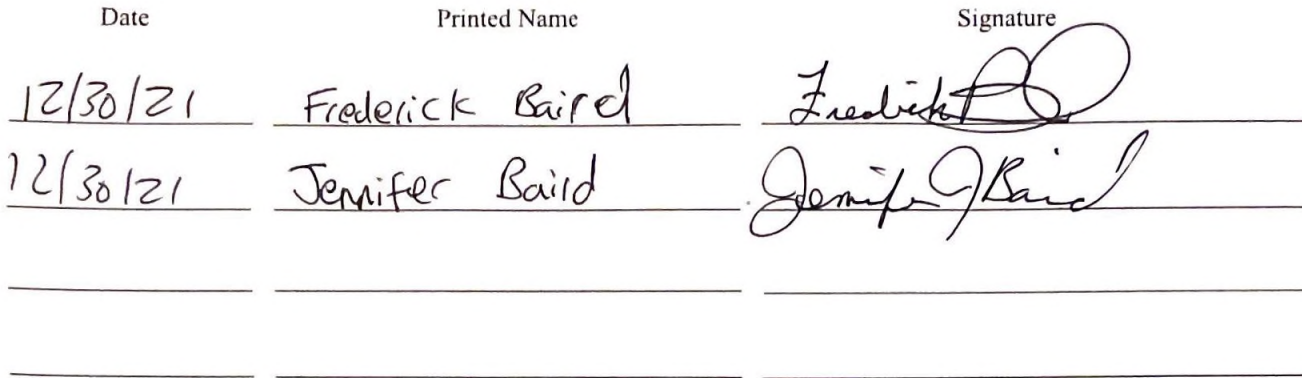 Date Printed Name Signature
12/30/21 Frederick Baird Fredrick
12/30/21 Jennifer Baird Jennifer J Baird